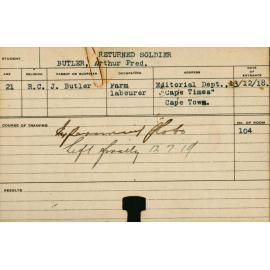 STUDENT
RETURNED SOLDIER
BUTLER, Arthur Fred.
AGE RELIGION PARENT OR GUARDIAN OCCUPATION ADDRESS DATE OF ENTRANCE
21 R.C. J. Butler Farm labourer Editorial Dept., "Cape Times" Cape Town. /12/18.
COURSE OF TRAINING
NO. OF ROOM
104
Left finally 12.7.19
RESULTS